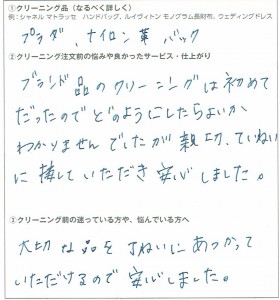 ①クリーニング品（なるべく詳しく）
例：シャネル マトラッセ ハンドバッグ、ルイヴィトン モノグラム長財布、ウェディングドレス
プラダ、ナイロン革 バック
②クリーニング注文前の悩みや良かったサービス・仕上がり
ブランド品のクリーニングは初めて
だったのでどのようにしたらよいか
わかりませんでしたが親切、ていねい
に接していただき安心しました。
③クリーニング前の迷っている方や、悩んでいる方へ
大切な品をていねいにあつかって
いただけるので安心しました。